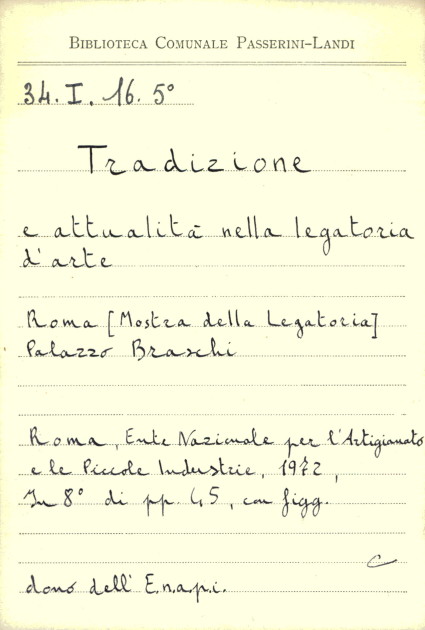 BIBLIOTECA COMUNALE PASSERINI-LANDI
34. I. 16. 5°
Tradizione
e attualità nella legatoria
d'arte
Roma [Mostra della Legatoria]
Palazzo Braschi
Roma, Ente Nazionale per l'Artigianato
e le Piccole Industrie, 1972,
In 8° di pp. 45, con figg.
C
dono dell' E.n.a.p.i.